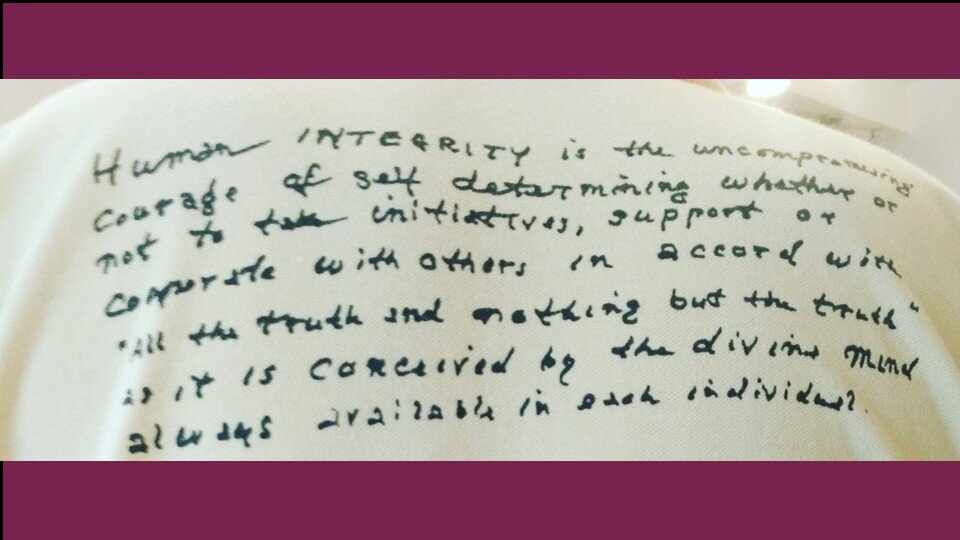 Human INTEGRITY is the uncompromising
courage of self determining whether or
not to take initiatives, support or
cooperate with others in accord with
"All the truth and nothing but the truth"
as it is conceived by the divine mind
always available in each individual.